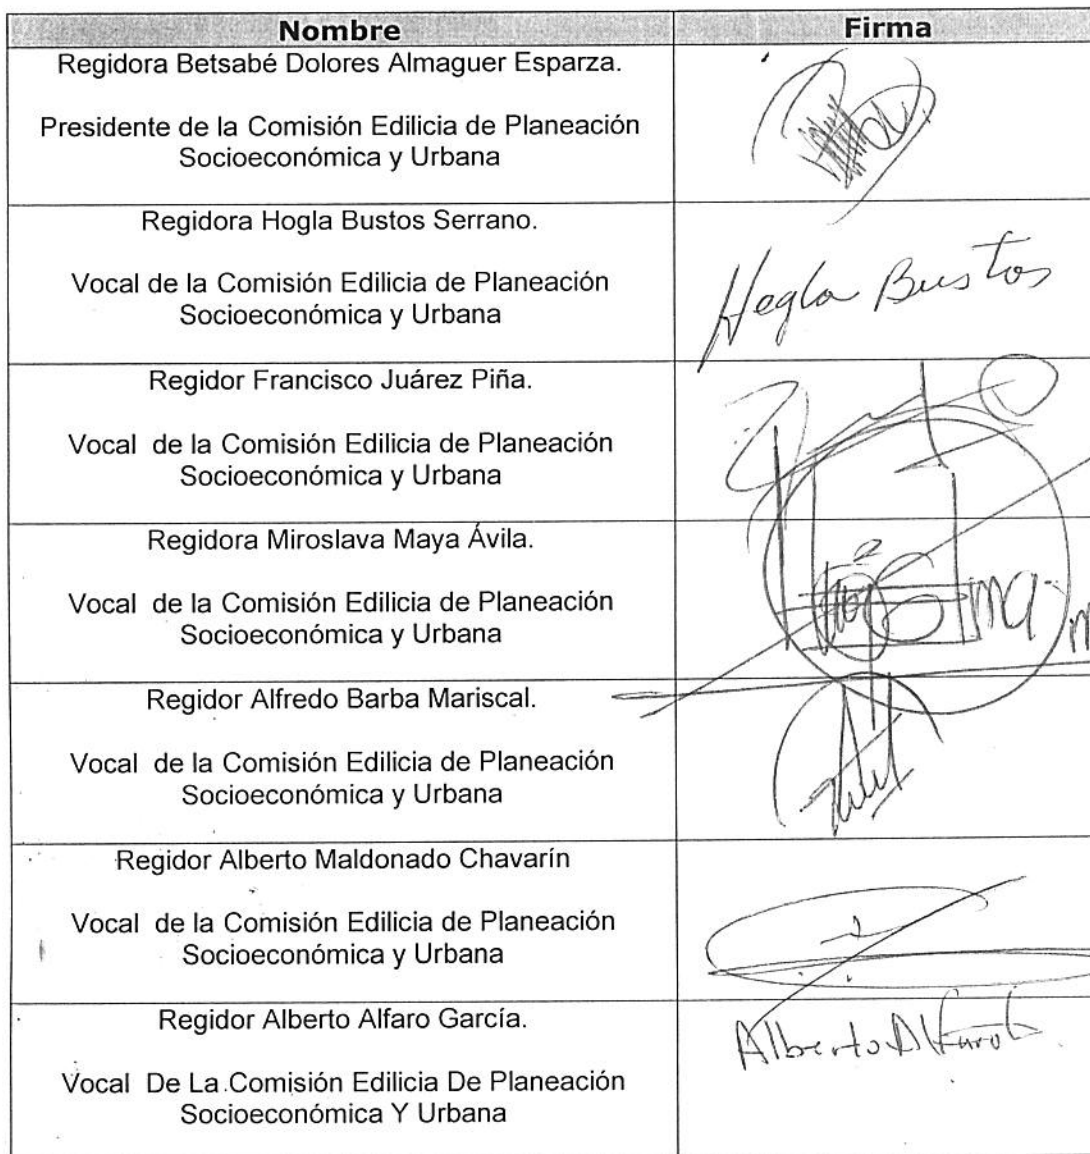 Nombre Firma
Regidora Betsabé Dolores Almaguer Esparza.
Presidente de la Comisión Edilicia de Planeación
Socioeconómica y Urbana
Regidora Hogla Bustos Serrano.
Hogla Bustos
Vocal de la Comisión Edilicia de Planeación
Socioeconómica y Urbana
Regidor Francisco Juárez Piña.
Vocal de la Comisión Edilicia de Planeación
Socioeconómica y Urbana
Regidora Miroslava Maya Ávila.
Vocal de la Comisión Edilicia de Planeación
Socioeconómica y Urbana
Regidor Alfredo Barba Mariscal.
Vocal de la Comisión Edilicia de Planeación
Socioeconómica y Urbana
Regidor Alberto Maldonado Chavarín
Vocal de la Comisión Edilicia de Planeación
Socioeconómica y Urbana
Regidor Alberto Alfaro García.
Alberto Alfaro
Vocal De La Comisión Edilicia De Planeación
Socioeconómica Y Urbana